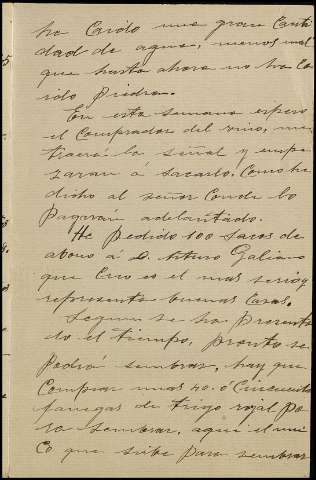 ha caido una gran canti
dad de agua, menos mal
que hasta ahora no ha ca
ido piedra.
En esta semana espero
el comprador del vino, me
traerá la señal y empe
zaran á sacarlo. Como he
dicho al señor Conde lo
pagarán adelantado.
He pedido 100 sacos de
abono á D. Arturo Galiano
que creo es el mas serio y
representa buenas casas.
Segun se ha presenta
do el tiempo, pronto se
podrá sembrar, hay que
comprar unas 40 ó cincuenta
fanegas de trigo rojal pa
ra sembrar, aquí el uni
co que sirbe para sembrar